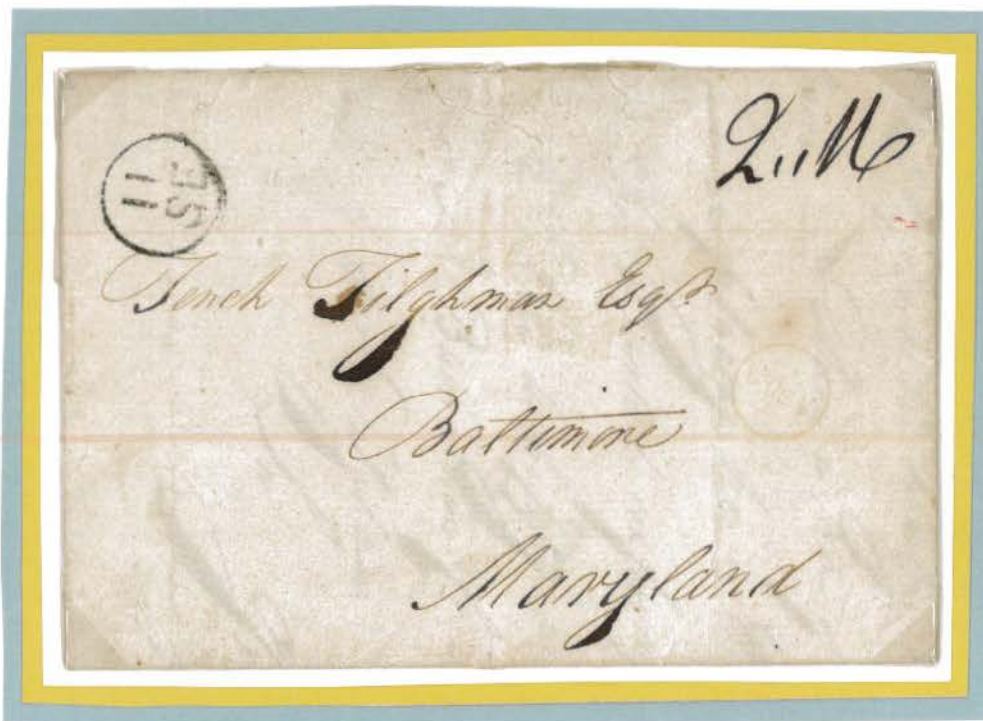 2,,16
11
SE
Tench Tilghman Esqr
Baltimore
Maryland